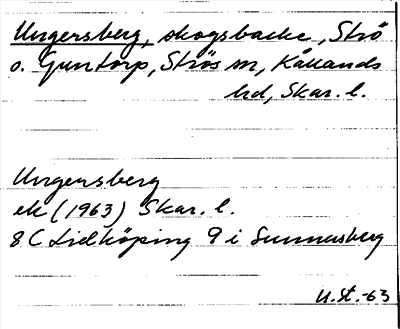 Ungersberg, skogsbacke, Strö
o. Guntorp, Strös sn, Kållands
hd, Skar. l.
Ungersberg
ek (1963) Skar. l.
8 C Lidköping 9 i Sunnersberg
U.St.-63